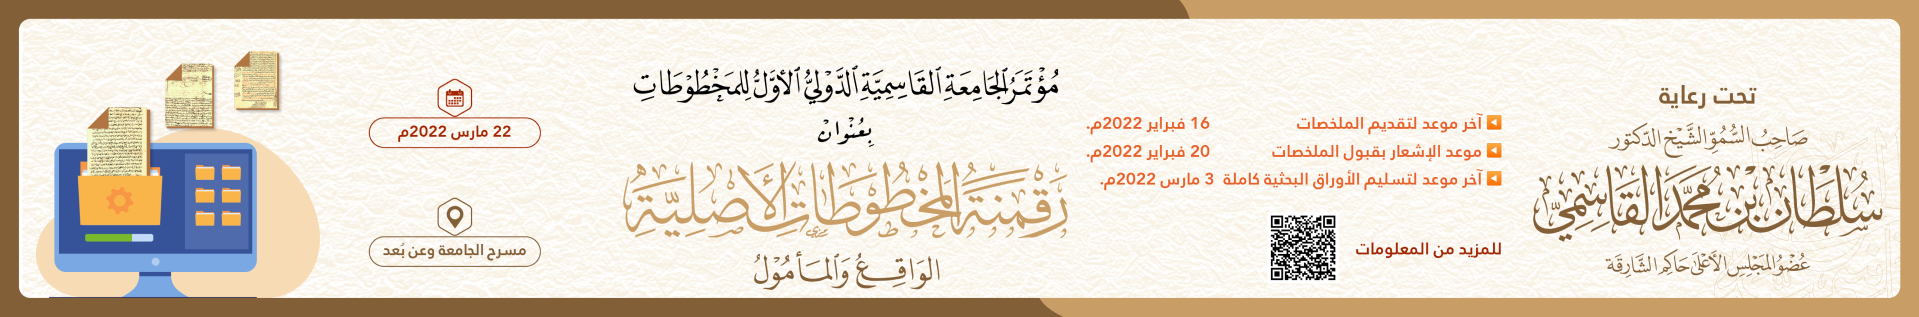 تحت رعاية
صَاحِبُ السُّمُوِّ الشَّيْخ الدّكتور
سُلطَان بْن مُحَمَّد القَاسِمِيّ
عُضْوُ المَجْلِس الأَعْلَىٰ حَاكِم الشَّارِقَة
آخر موعد لتقديم الملخصات 16 فبراير 2022م.
موعد الإشعار بقبول الملخصات 20 فبراير 2022م.
آخر موعد لتسليم الأوراق البحثية كاملة 3 مارس 2022م.
للمزيد من المعلومات
مُؤْتَمَرُ الجَامِعَةِ القَاسِمِيَّةِ الدَّوْلِيُّ الأَوَّلُ لِلمَخْطُوطَاتِ
بِعُنْوَانْ
رَقْمَنَةُ المَخْطُوطَاتِ الأَصْلِيَّةِ
الوَاقِعُ وَالمَأمُوْلُ
22 مارس 2022م
مسرح الجامعة وعن بُعد